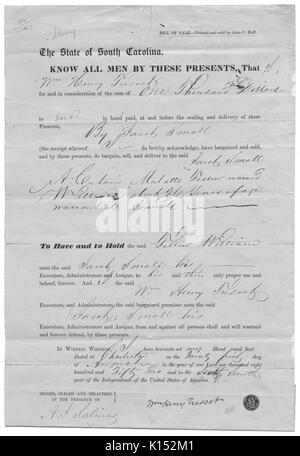 BILL OF SALE.—Printed and sold by John C. Hoff.
The State of South Carolina.
KNOW ALL MEN BY THESE PRESENTS, That I,
Wm Henry Trescot
for and in consideration of the sum of One Thousand Dollars
to me in hand paid, at and before the sealing and delivery of these
Presents,
By Jacob Small
(the receipt whereof I do hereby acknowledge) have bargained and sold,
and by these presents, do bargain, sell, and deliver to the said
Jacob Small
A Certain Mulatto Fellow named
William about years of age
warranted Sound
To Have and to Hold the said Fellow William
unto the said Jacob Small his
Executors, Administrators and Assigns, to his and their only proper use and
behoof, forever. And I the said
Wm Henry Trescot
Executors, and Administrators, the said bargained premises unto the said
Jacob Small his
Executors, Administrators and Assigns, from and against all persons shall and will warrant
and forever defend, by these presents.
IN WITNESS WHEREOF, I have hereunto set my Hand and Seal
Dated at Charleston on the day
of in the year of our Lord one thousand eight
hundred and Fifty two and in the Seventy
year of the Independence of the United States of America.
SIGNED, SEALED AND DELIVERED
IN THE PRESENCE OF
Wm Henry Trescot
alamy
K152M1